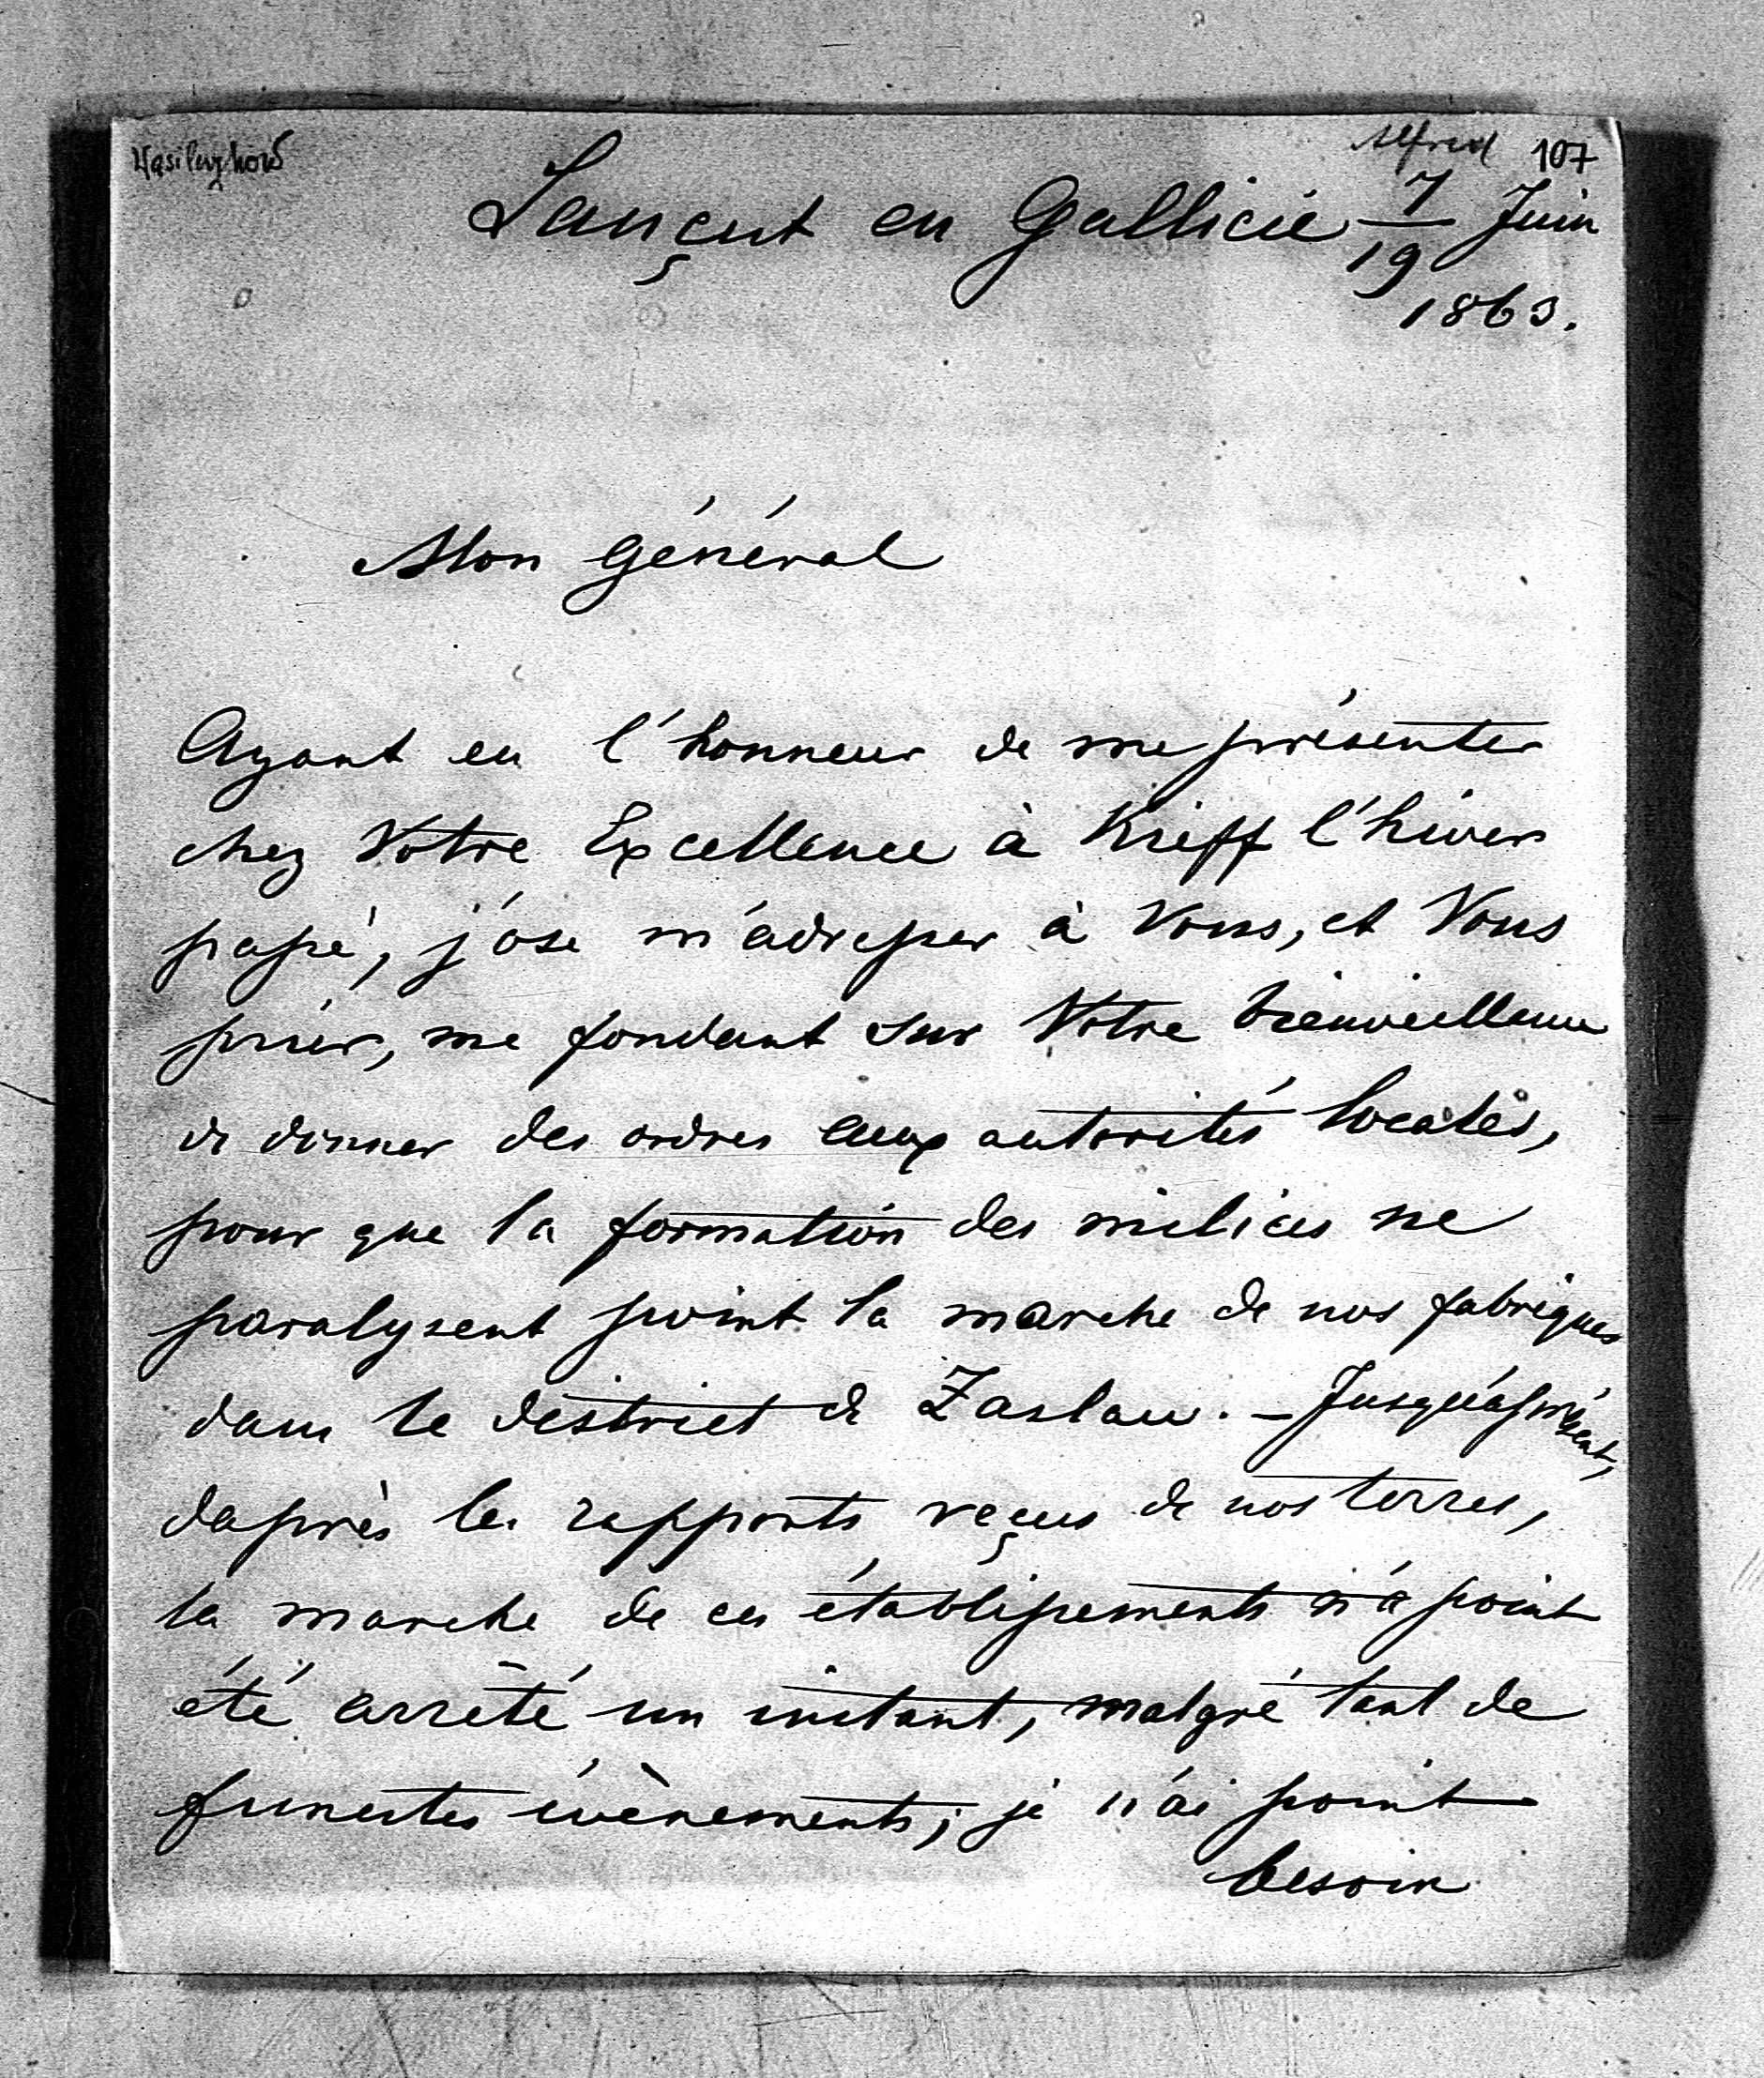 Alfred 107
Lançut en Gallicie 7/19 Juin
1863.
Mon général
Ayant eu l'honneur de me présenter
chez Votre Excellence à Kieff l'hiver
passé, j'ose m'adresser à Vous, et Vous
prier, me fondant sur Votre bienveillance
de donner des ordres aux autorités locales,
pour que la formation des milices ne
paralysent point la marche de nos fabriques
dans le district de Zaslau. – Jusqu'à présent,
daprès les rapports reçus de nos terres,
la marche de ces établissements n'a point
été arrêté un instant, malgré tant de
funestes évènements; je n'ai point
besoin